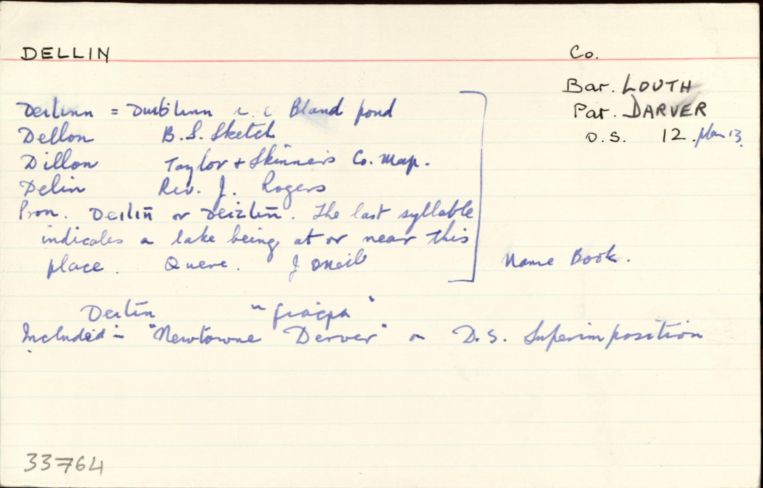 DELLIN
Co.
Bar. LOUTH
Par. DARVER
O.S. 12. plan 13.
= i.e Bland pond
Dellon B.S. Sketch
Dillon Taylor + Skinners Co. Map.
Delin Rev. J. Rogers
Pron. or The last syllable
indicates a lake being at or near this
place. Quere. J ONeill
Name Book.
Included in "Newtowne Derver" on D.S. Superimposition
33764